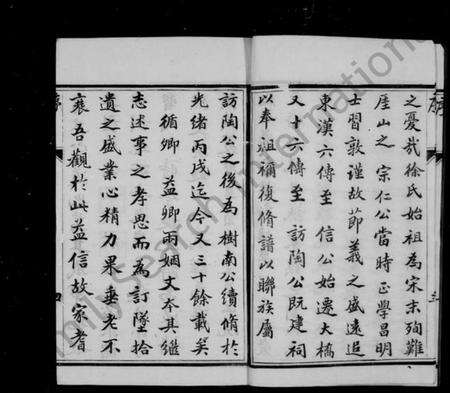 序
之憂哉徐氏始祖為宋末殉難
厓山之 宗仁公當時正學昌明
士習敦謹故節義之盛遠追
東漢六傳至 信公始遷大橋
又十六傳至 訪陶公既建祠
以奉祖禰復脩譜以聯族屬
三
訪陶公之後為樹南公續脩於
光緒丙戌迄今又三十餘載矣
循卿 益卿兩姻丈本其繼
志述事之孝思而為訂墜拾
遺之盛業心精力果垂老不
衰吾觀於此益信故家耆
序
四
FamilySearch International